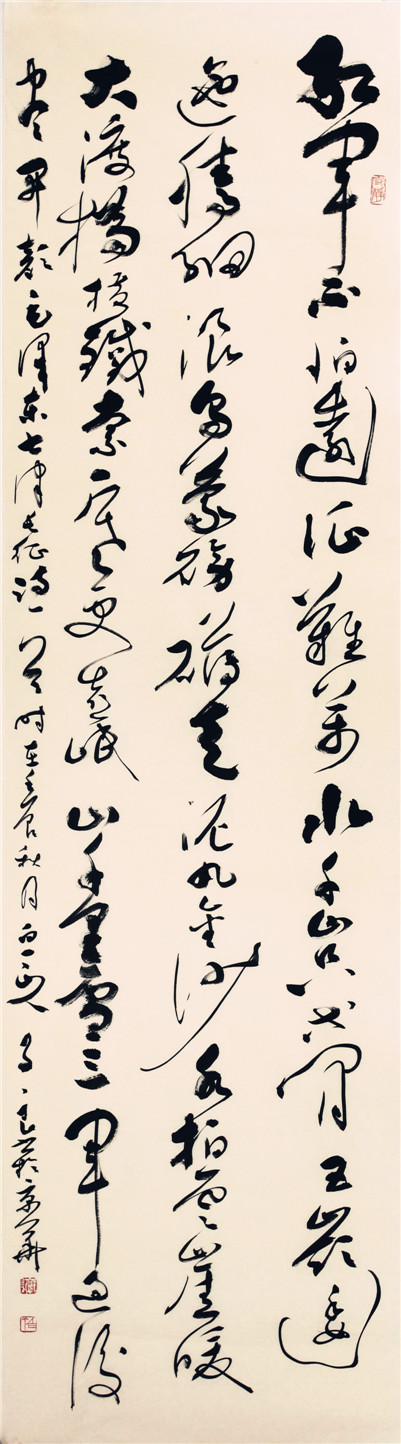 紅軍不怕遠征難萬水千山只等閒五嶺逶
迤騰細浪烏蒙磅礴走泥丸金沙水拍雲崖暖
大渡橋橫鐵索寒更喜岷山千里雪三軍過後
盡開顏毛澤東七律長征詩一首時在壬辰秋月於京華